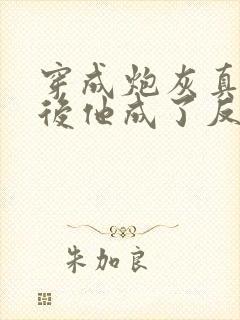 穿成炮灰真
後他成了反
朱加良